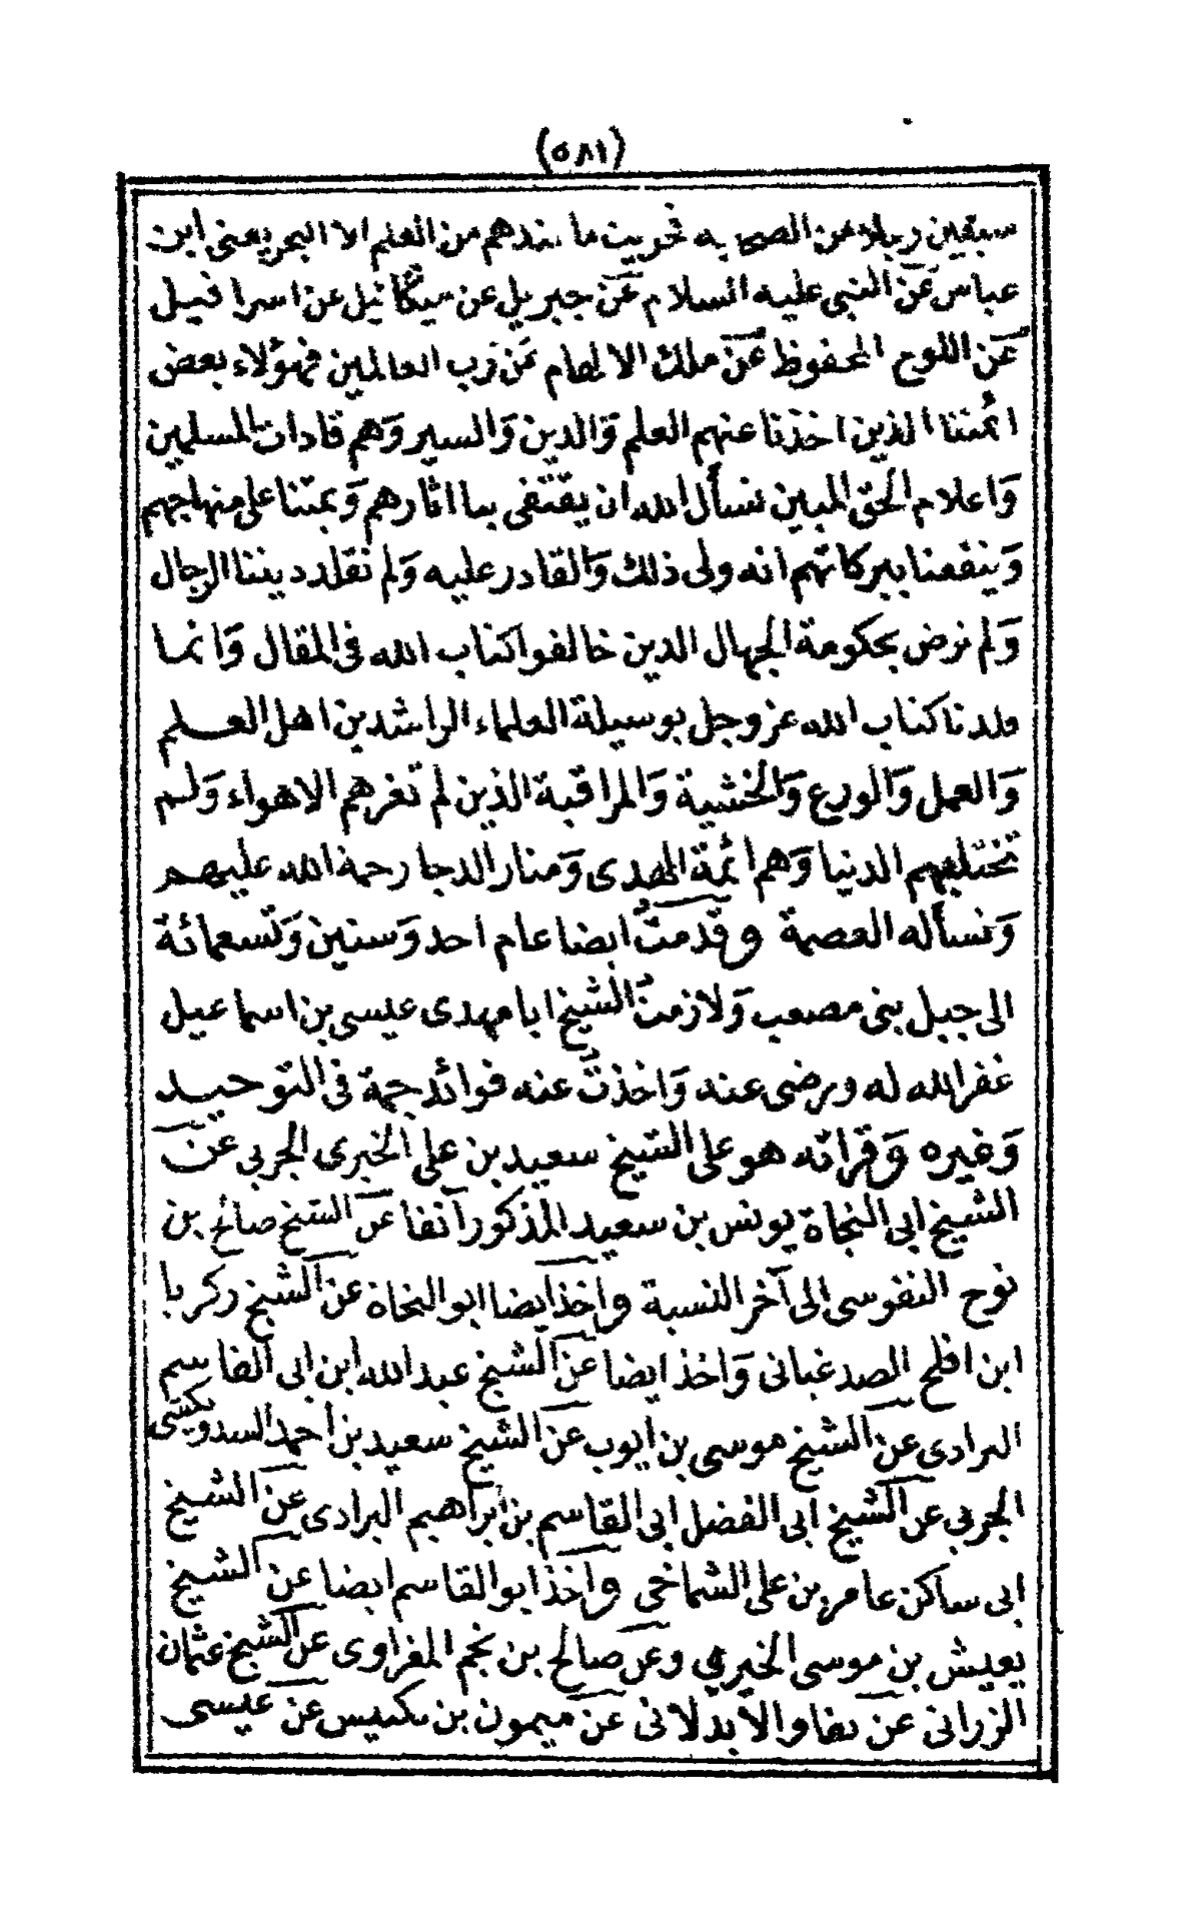 (٥٨١)
سبعين رجلا من الصحابة فحويت ما عندهم من العلم الا البحر يعنى ابن
عباس عن النبى عليه السلام عن جبريل عن ميكائيل عن اسرافيل
عن اللوح المحفوظ عن ملك الالهام عن رب العالمين فهؤلاء بعض
ائمتنا الذين اخذنا عنهم العلم والدين والسير وهم قادات المسلمين
واعلام الحق المبين نسأل الله ان يقتفى بنا اثارهم ويمتنا على منهاجهم
وينفعنا ببركاتهم انه ولى ذلك والقادر عليه ولم نقلد ديننا الرجال
ولم نرض بحكومة الجهال الذين خالفوا كتاب الله فى المقال وانما
قلدنا كتاب الله عز وجل بوسيلة العلماء الراشدين اهل العلم
والعمل والورع والخشية والمراقبة الذين لم تغرهم الاهواء ولم
تختلبهم الدنيا وهم ائمة الهدى ومنار الدجا رحمة الله عليهم
ونسأله العصمة وقدمت ايضا عام احد وستين وتسعمائة
الى جبل بنى مصعب ولازمت الشيخ ابا مهدى عيسى بن اسماعيل
غفر الله له ورضى عنه واخذت عنه فوائد جمة فى التوحيد
وغيره وقراته هو على الشيخ سعيد بن على الخيرى الجربى عن
الشيخ ابى النجاة يونس بن سعيد المذكور آنفا عن الشيخ صالح بن
نوح النفوسى الى آخر النسبة واخذ ايضا ابو النجاة عن الشيخ زكريا
ابن افلح الصدغيانى واخذ ايضا عن الشيخ عبد الله ابن ابى القاسم
البرادى عن الشيخ موسى بن ايوب عن الشيخ سعيد بن أحمد السدويكشى
الجربى عن الشيخ ابى الفضل ابى القاسم بن ابراهيم البرادى عن الشيخ
ابى ساكن عامر بن على الشماخى واخذ ابو القاسم ايضا عن الشيخ
يعيش بن موسى الخيرى وعن صالح بن نجم المغراوى عن الشيخ عثمان
الزرانى عن نفاو الأبدلانى عن ميمون بن تكنيس عن عيسى